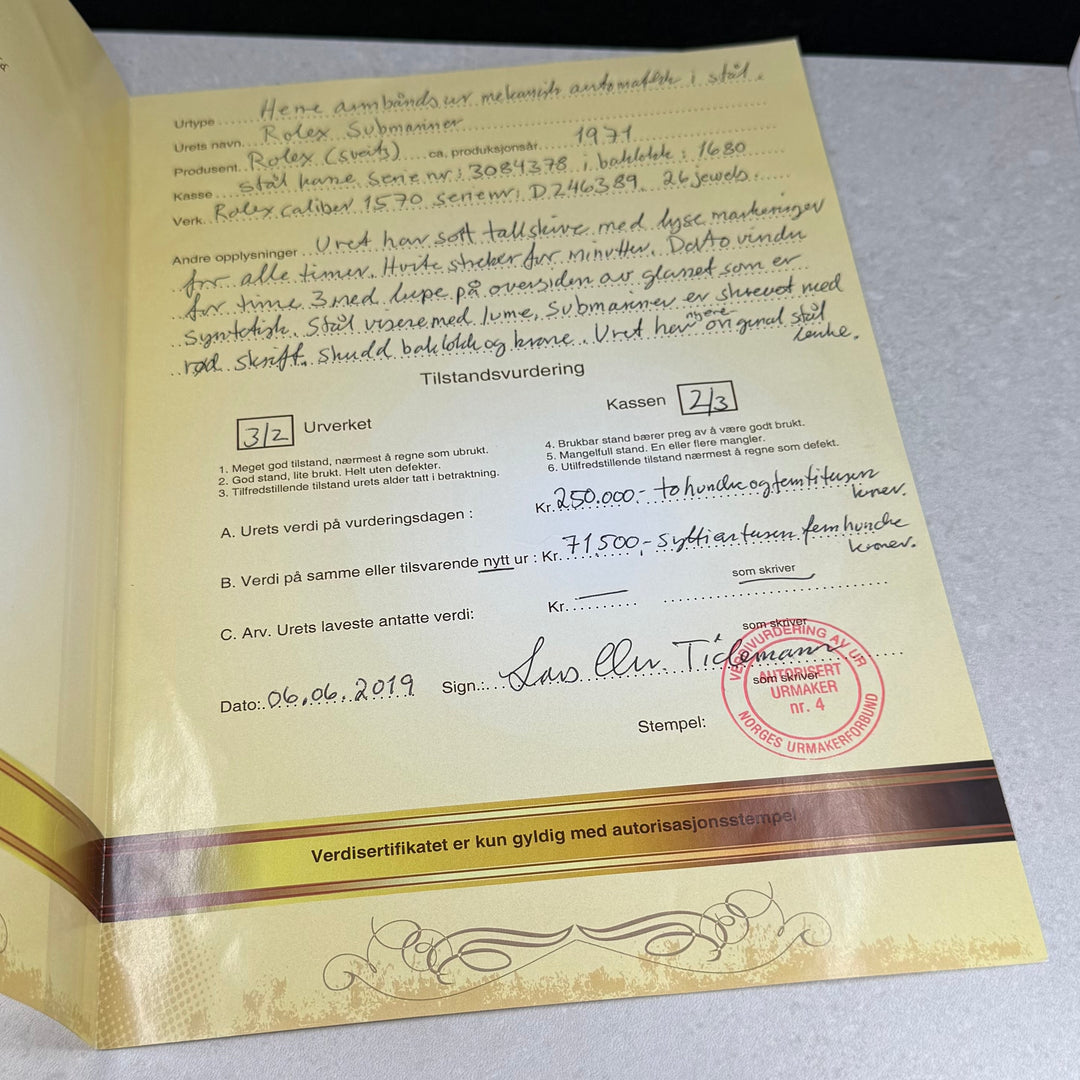 Urtype .... Herre armbåndsur mekanisk automatikk i stål.
Urets navn. Rolex Submariner
Produsent. Rolex (sveits) .... ca. produksjonsår. 1971
Kasse .. Stål kasse serie nr: 3084378 i baklokk: 1680
Verk.. Rolex caliber 1570 serienr: D246389. 26 jewels.
Andre opplysninger .. Uret har sort tallskive med lyse markeringer
for alle timer. Hvite streker for minutter. Datovindu
for time 3 med lupe på oversiden av glasset som er
syntetisk. Stål visere med lume, Submariner er skrevet med
rød skrift. Skrudd baklokk og krone. Uret har nyere original stål
lenke.
Tilstandsvurdering
3/2 Urverket
Kassen 2/3
1. Meget god tilstand, nærmest å regne som ubrukt.
2. God stand, lite brukt. Helt uten defekter.
3. Tilfredstillende tilstand urets alder tatt i betraktning.
4. Brukbar stand bærer preg av å være godt brukt.
5. Mangelfull stand. En eller flere mangler.
6. Utilfredstillende tilstand nærmest å regne som defekt.
A. Urets verdi på vurderingsdagen : Kr. 250.000.- tohundreogfemtitusen
kroner.
B. Verdi på samme eller tilsvarende nytt ur : Kr. 71,500,- syttientusen femhundre
kroner.
som skriver
C. Arv. Urets laveste antatte verdi: Kr. —
som skriver
Dato:. 06.06.2019 Sign.: Tidemann
som skriver
Stempel:
VERDIVURDERING AV UR
AUTORISERT
URMAKER
nr. 4
NORGES URMAKERFORBUND
Verdisertifikatet er kun gyldig med autorisasjonsstempel